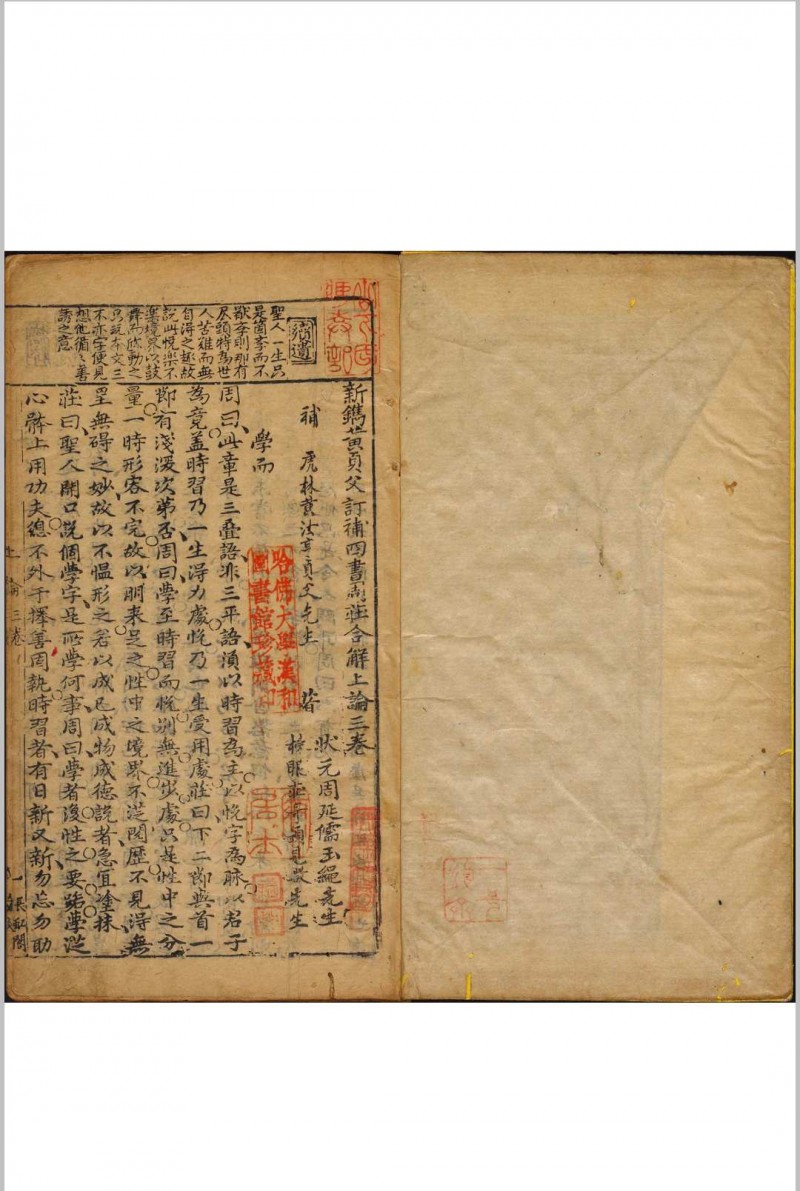 新鐫黃貞父訂補四書周莊合解上論三卷
狀元周延儒玉繩先生
補 虎林黃汝亨貞父先生 著
榜眼莊奇顯見微先生
學而
周曰此章是三叠語非三平語湏以時習為主以悅字為脉以君子
為竟盖時習乃一生得力處悅乃一生受用處莊曰下二節與首一
節有淺深次第否周曰學至時習而悅別無進步處只是性中之分
量一時形容不完故以朋来足之性中之境界不淫閱歷不見得無
罣無碍之妙故以不慍形之君以成己成物成德說者急宜塗抹
莊曰聖人開口說個學字是所學何事周曰學者復性之要路學從
心體上用功夫總不外于擇善固執時習者有日新又新勿忘勿助
補遺
聖人一生只
是箇李而不
猒李則那有
尽頭特為世
人苦难而無
自得之趣故
說出悅樂不
樂境界以鼓
舞而欣動之
只玩本文三
不亦字便見
想他循〻善
誘之意
上論三卷
哈佛大學漢和
圖書館珍藏印